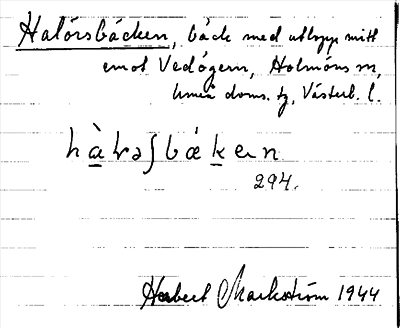 Halörsbäcken, bäck med utlopp mitt
emot Vedögern, Holmöns sn,
Umeå doms. tg, Västerb. l.
hàlrəʃbäken
294.
Herbert Markström 1944